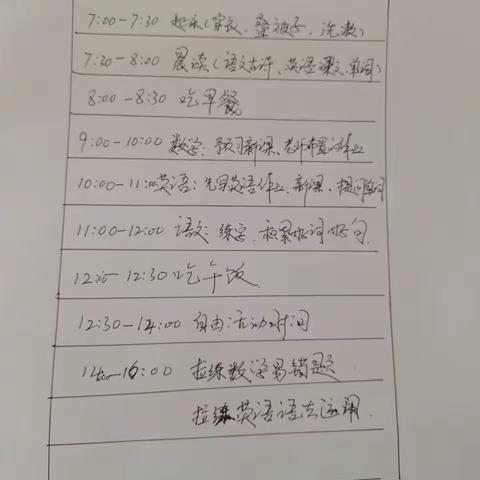 7:00-7:30 起床(穿衣、叠被子、洗漱)
7:30-8:00 晨读(语文古诗、英语课文、单词)
8:00-8:30 吃早餐
9:00-10:00 数学:预习新课、老师布置的作业
10:00-11:00 英语:先写英语作业、新课、提问单词
11:00-12:00 语文:练字、积累好词好句.
12:00-12:30 吃午饭
12:30-14:00 自由活动时间
14:00-16:00 拉练数学易错题
拉练英语语法运用.